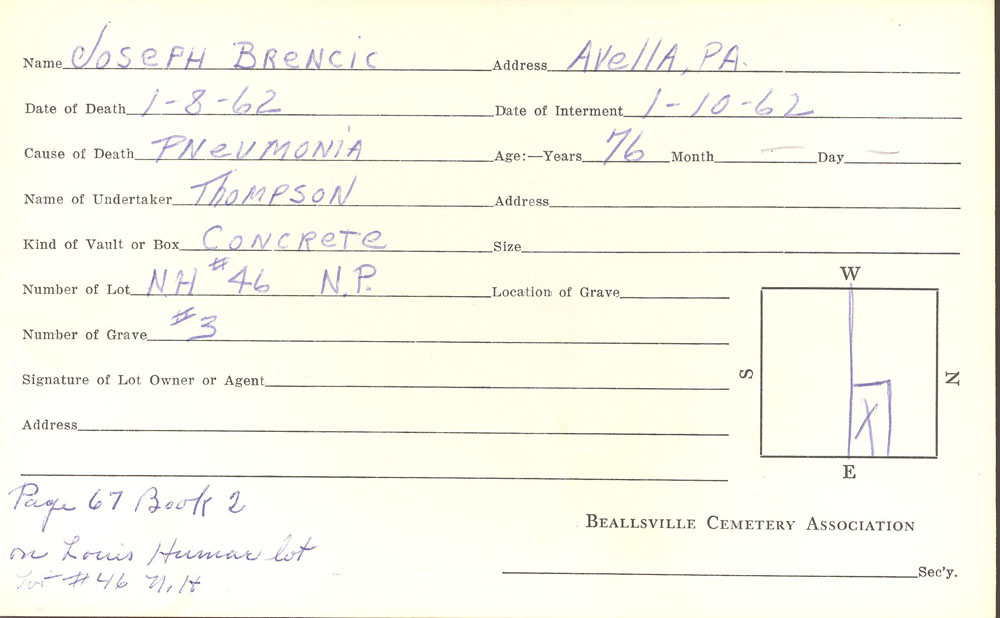 Name Joseph Brencic Address Avella, PA.
Date of Death 1-8-62 Date of Interment 1-10-62
Cause of Death Pneumonia Age:—Years 76 Month — Day —
Name of Undertaker Thompson Address
Kind of Vault or Box Concrete Size
Number of Lot NH #46 N.P. Location of Grave
Number of Grave #3
Signature of Lot Owner or Agent
Address
W
S
N
X
E
Page 67 Book 2
on Louis Humar lot
Lot #46 N.H
Beallsville Cemetery Association
Sec'y.